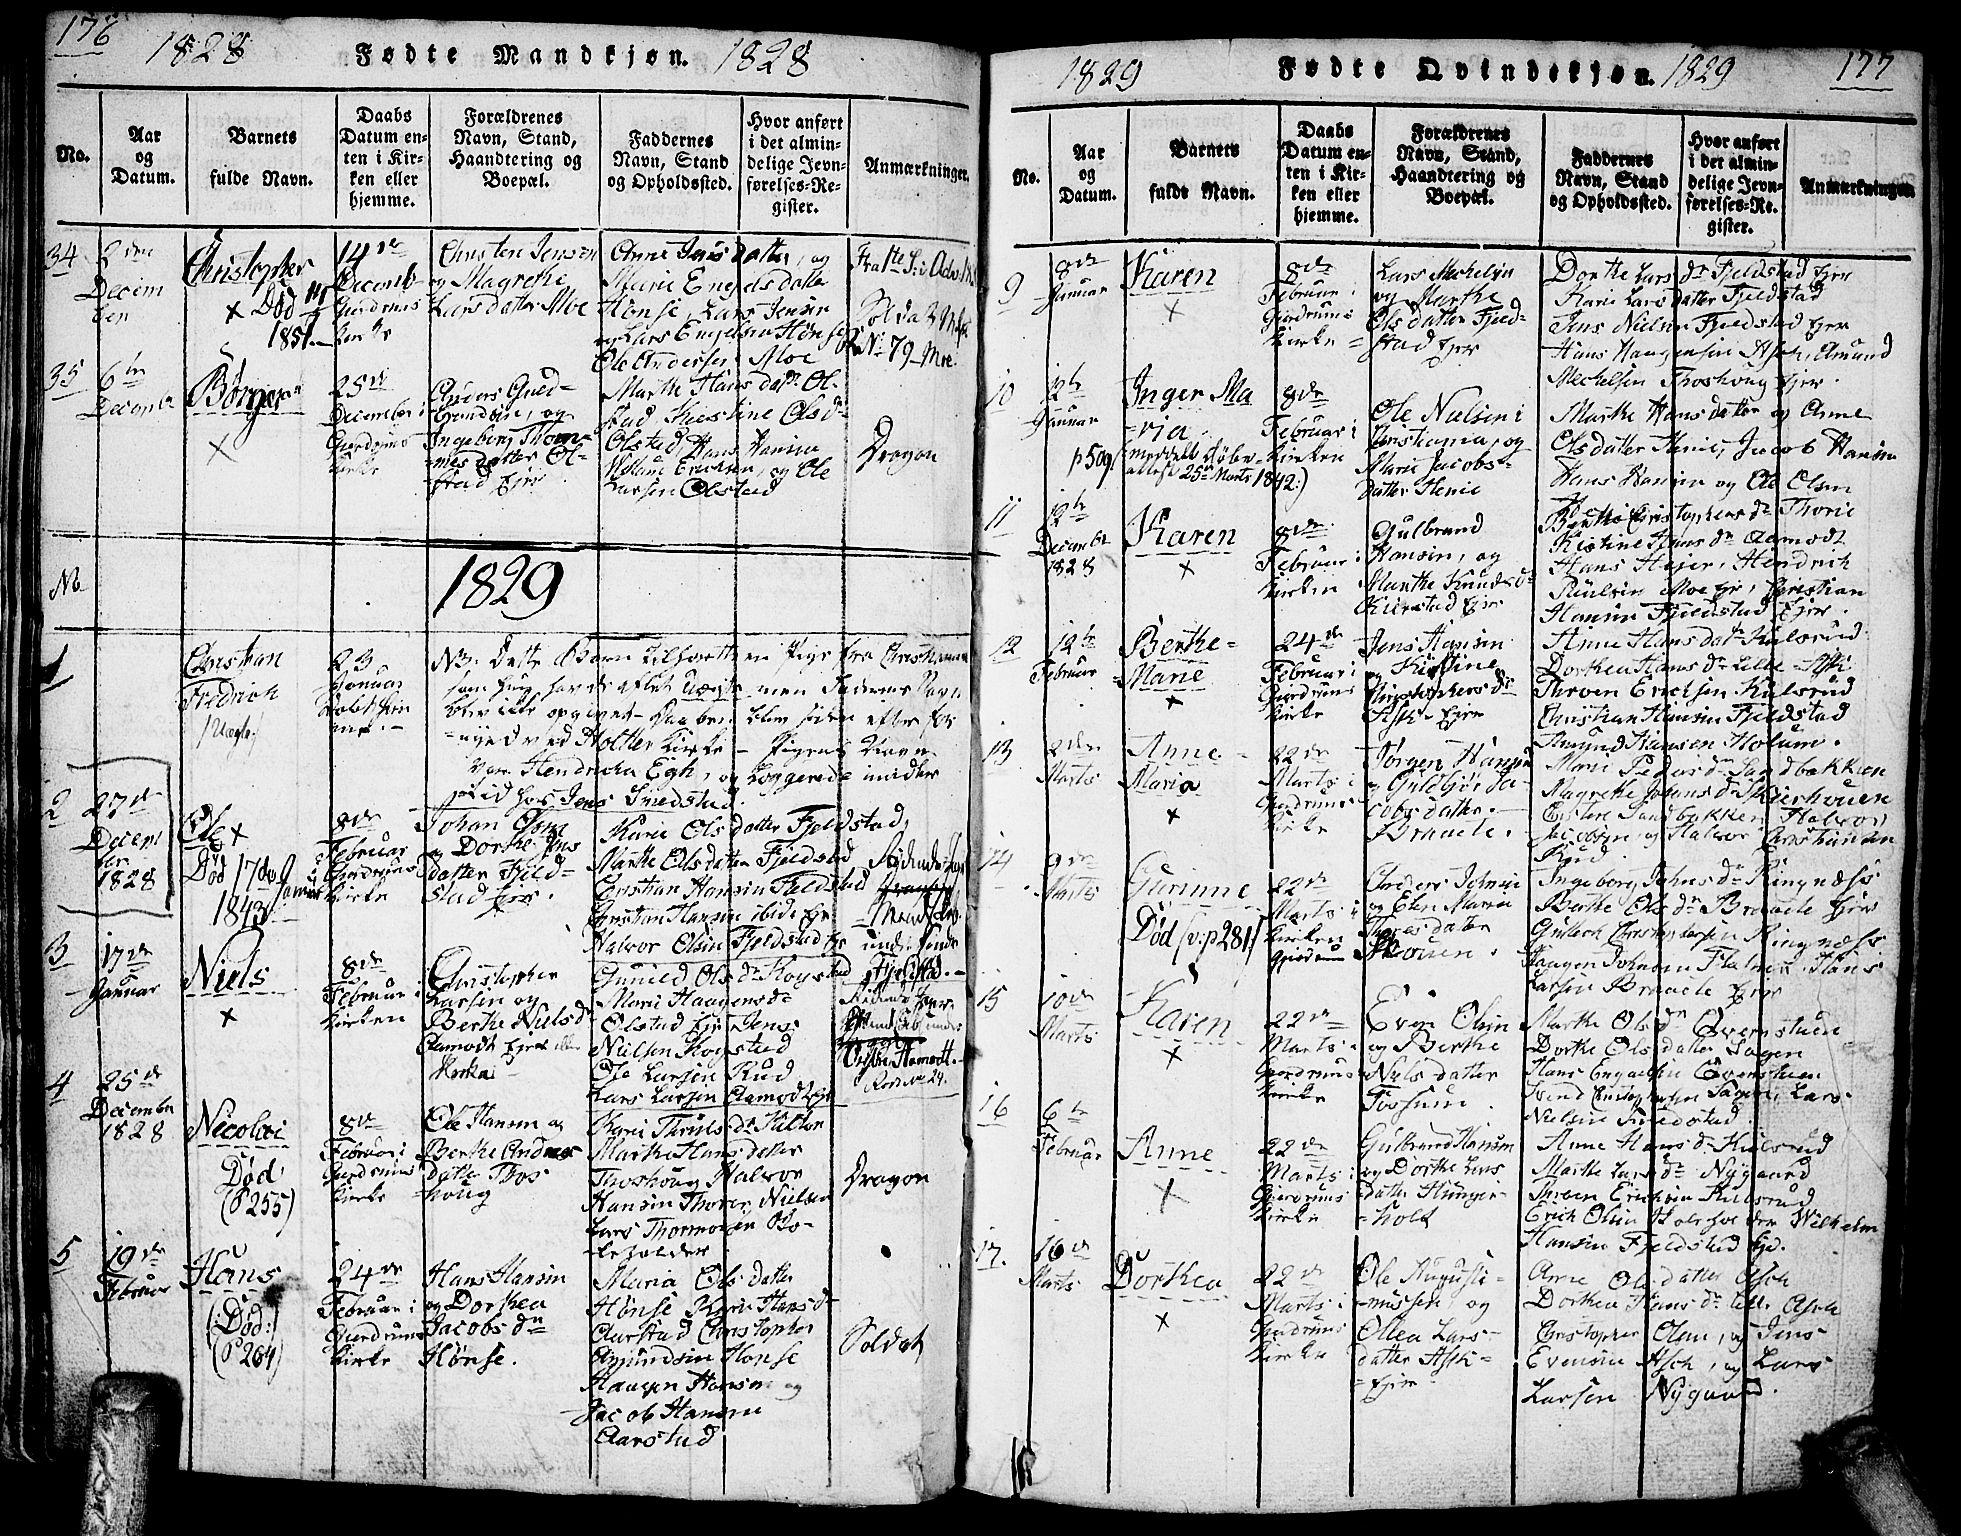 176
1828 Fødte Mandkjøn. 1828
No.
Aar og Datum.
Barnets fulde Navn.
Daabs Datum enten i Kirken eller hjemme.
Forældrenes Navn, Stand, Haandtering og Boepæl.
Faddernes Navn, Stand og Opholdssted.
Hvor anført i det almindelige Jevnførelses-Register.
Anmærkninger.
34
2den
Decem
ber
Christopher
x Død
1851.
14de
Decemb
Gierdrums
Kirke
Christen Jensen
og Magrethe
Larsdatter Moe
Anne Jensdatter, og
Marie Engelsdatter
Hønse, Lars Jensen
og Lars Engelsen Hønse
Ole Andersen Moe
Soldat
No 79 Moe.
35
6te
Decembr
Børger
x
25de
December i
Gierdrums
Kirke
Anders Gud-
brandsen, og
Ingeborg Thom-
mesdatter Ol-
stad Ejer
Marthe Hansdatr Ol-
stad, Kiestine Olsdr
Olstad, Hans Hansen
Willum Erichsen, og Ole
Larsen Olstad
Dragon
No
1829
1
Christian
Fredrich
/Uægte/
23
Januar
NB. Dette Barn tilhørte en Pige fra Christiania
som hun havde avlet uægte men Faderens Navn
blev ikke opgivet Daaben blev siden efter for
nyed ved Holter Kirke - Pigens Navn
var Hendricha Egh, og Loggerede imidler
tid hos Jens Smedstad.
2
27de
Decem
ber
1828
Ole x
Død 17de
Januar
1843
8de
Februar
Gierdrums
Kirke
Johan Olsen
og Dorthe Jens
datter Fjeld-
stad Ejer.
Karie Olsdatter Fjeldstad,
Marthe Olsdatter Fjeldstad
Christian Hansen Fjeldstad
Christian Hansen ibide Ejer
Halvor Olsen Fjeldstad Ejer
3
17de
Januar
Niels
x
8de
Februar i
Kirken
Christopher
Larsen og
Berthe Nielsdr
Aamodt Ejer
Gunild Olsdr Kogstad
Marie Haagensdr
Olstad Ejer Jens
Nielsen Kogstad
Ole Larsen Rud
Lars Larsen Aamodt Ejer
4
25de
December
1828
Nicolai
Død
(P 255)
8de
Februar i
Gierdrums
Kirke
Ole Hansen og
Berthe Andreas
datter Thos
houg
Marthe Hansdatter
Thoshoug Halvor
Hansen Thorer, Nielsen
Lars Thormoesen Bo-
leholder
Dragon
5
19de
Februar
Hans
(:Død:)
(P 264)
24de
Februar i
Gierdrums
Kirke
Hans Hansen
og Dorthea
Jacobsdr
Hønse.
Maria Olsdatter
Hønse Karie Hansdr
Aarstad Christopher
Amundsen Hønse
Haagen Hansen og
Jacob Hansen
Aarstad
Soldat
1829 Fødte Qvindekjøn. 1829 177
No.
Aar og Datum.
Barnets fulde Navn.
Daabs Datum enten i Kirken eller hjemme.
Forældrenes Navn, Stand, Haandtering og Boepæl.
Faddernes Navn, Stand og Opholdssted.
Hvor anført i det almindelige Jevnførelses-Register.
Anmærkninger.
9
8de
Januar
Karen
x
8de
Februar i
Gierdrums
Kirke
Lars Mechelsen
og Marthe
Olsdatter Fjeld-
stad Ejer
Dorthe Larsdr Fjeldstad Ejer
Karie Larsdatter Fjeldstad
Jens Nielsen Fjeldstad Ejer
Hans Haagensen Asch, Amund
Mechelsen Thoshoug Ejer.
10
12te
Januar
Inger Ma
ria.
p 509
25de Marts 1842:)
8de
Februar i
Kirken
Ole Nielsen i
Christiania, og
Marie Jacobs-
datter Henie
Marthe Hansdatter og Anne
Olsdatter Henie, Jacob Hansen
Hans Hansen og Ole Olsen
11
12te
December
1828
Karen
x
8de
Februar i
Kirken
Gulbrand
Hansen, og
Marthe Knudsdr
Kierstad Ejer
Berthe Christophersdr Thorie
Kistine Hansdr Aamodt
Hans Hejer, Hendrich
Poulsen Moe Ejer, Christian
Hansen Fjeldstad Ejer.
12
12te
Februar
Berthe
Marie
x
24de
Februar i
Gierdrums
Kirke
Jens Hansen
og Kistine
Christophersdr
Ask Ejer
Anne Hansdatr Kulsrud
Dorthea Hansdr Lille Ask
Thoren Erichsen Kulsrud
Christian Hansen Fjeldstad
Amund Hansen Holum.
13
2den
Marts
Anne
Maria
x
22de
Marts i
Gierdrums
Kirke
Jørgen Hansen
og Guldbjør Ja-
cobsdatter.
Braate.
Marie Pedersdr Sandbakken
Magrethe Johansdr
Eystein Sandbakken Halvor
Jacobsen og Halvor Christiansen
Rud.
14
9de
Marts
Gurinne
Død /v: p 281/
22de
Marts i
Kirken
Gierdrum
Anders Johnsen
og Elen Maria
Thoresdatter
Ingeborg Johnsdr Ringnæss
Berthe Olsdr Braate Ejer
Gulbech Christophersen Ringnæss
Haagen Johnsen Hans
Larsen Braate Ejer
15
10de
Marts
Karen
x
22de
Marts i
Gierdrums
Kirke
Even Olsen
og Berthe
Nielsdatter
Fossum.
Marthe Olsdr Qvenstuen
Dorthe Olsdatter Sagen
Hans Engelsen Evenstuen
Svend Christophersen Sagen, Lars
Nielsen Fjeldstad
16
6te
Februar
Anne
x
22de
Marts i
Gierdrums
Kirke
Gulbrand Hansen
og Dorthe Lars
datter Hunger-
holt
Anne Hansdr Kulsrud
Marthe Larsdr Nygaard
Thoren Erichsen Kulsrud
Erich Olsen Wilhelm
Hansen Fjeldstad Ejer.
17.
16de
Marts
Dorthea
x
22de
Marts i
Gierdrums
Kirke
Ole Augusti-
nussen, og
Ollea Lars-
datter Ask
Ejer
Anne Olsdatter Asch
Dorthea Hansdr lille Asch
Christopher Olsen, og Jens
Evensen Asch, og Lars
Larsen Nygaard.